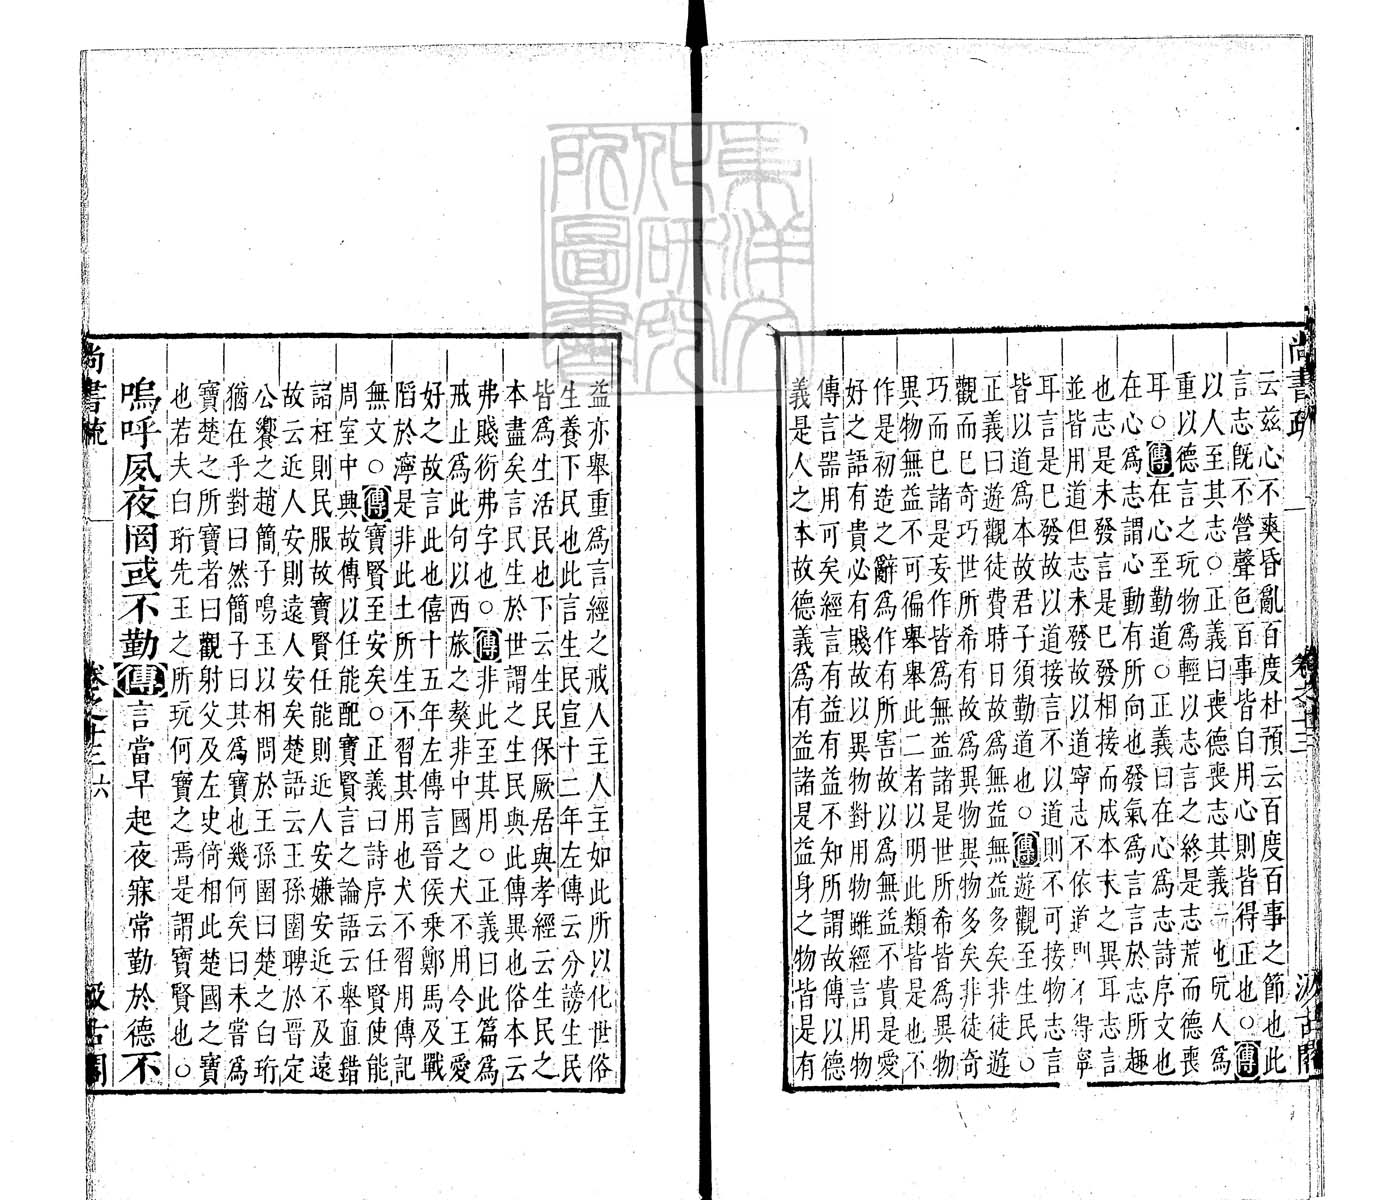 尚書疏 卷之十三 汲古閣
云茲心不爽昏亂百度杜預云百度百事之節也此
言志既不營聲色百事皆自用心則皆得正也○傳
以人至其志○正義曰喪德喪志其義一也玩人為
重以德言之玩物為輕以志言之終是志荒而德喪
耳○傳在心至勤道○正義曰在心為志詩序文也
在心為志謂心動有所向也發氣為言言於志所趣
也志是未發言是已發相接而成本末之異耳志言
並皆用道但志未發故以道寧志不依道則不得寧
耳言是已發故以道接言不以道則不可接物志言
皆以道為本故君子須勤道也○傳遊觀至生民○
正義曰遊觀徒費時日故為無益無益多矣非徒遊
觀而已奇巧世所希有故為異物異物多矣非徒奇
巧而已諸是妄作皆為無益諸是世所希皆為異物
異物無益不可徧舉舉此二者以明此類皆是也不
作是初造之辭為作有所害故以為無益不貴是愛
好之語有貴必有賤故以異物對用物雖經言用物
傳言器用可矣經言有益有益不知所謂故傳以德
義是人之本故德義為有益諸是益身之物皆是有
益亦舉重為言經之戒人主人主如此所以化世俗
生養下民也此言生民宣十二年左傳云分謗生民
皆為生活民也下云生民保厥居與孝經云生民之
本盡矣言民生於世謂之生民與此傳異也俗本云
弗賤衍弗字也○傳非此至其用○正義曰此篇為
戒止為此句以西旅之獒非中國之犬不用令王愛
好之故言此也僖十五年左傳言晉侯乘鄭馬及戰
陷於濘是非此土所生不習其用也犬不習用傳記
無文○傳寶賢至安矣○正義曰詩序云任賢使能
周室中興故傳以任能配寶賢言之論語云舉直錯
諸枉則民服故寶賢任能則近人安嫌安近不及遠
故云近人安則遠人安矣楚語云王孫圉聘於晉定
公饗之趙簡子鳴玉以相問於王孫圉曰楚之白珩
猶在乎對曰然簡子曰其為寶也幾何矣曰未嘗為
寶楚之所寶者曰觀射父及左史倚相此楚國之寶
也若夫白珩先王之所玩何寶之焉是謂寶賢也○
嗚呼夙夜罔或不勤傳言當早起夜寐常勤於德不
尚書疏 卷之十三 六 汲古閣
東洋文化研究所圖書